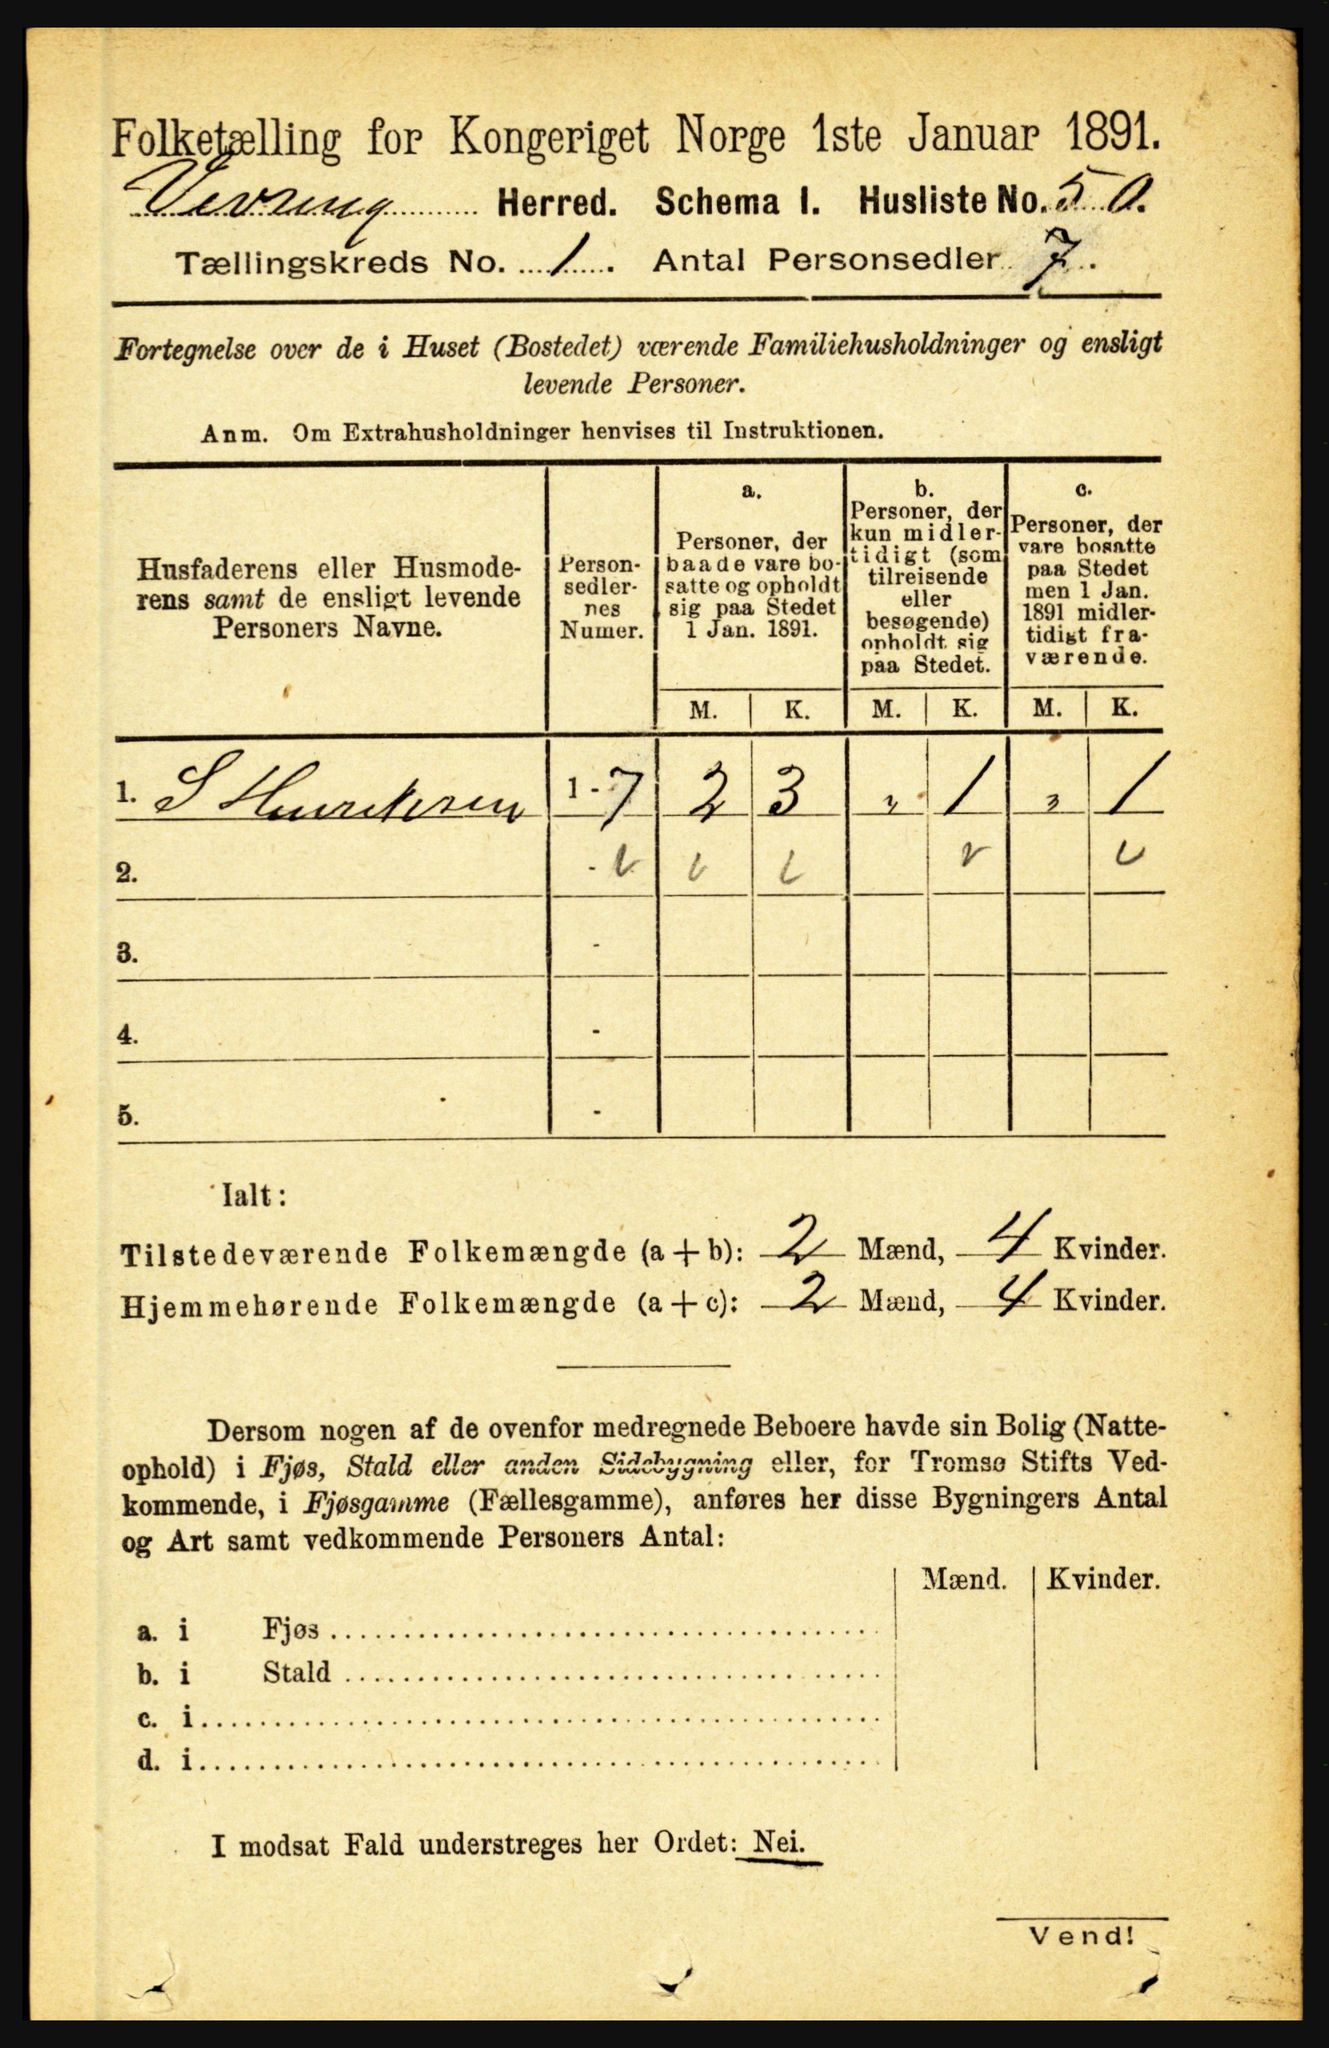 Folketælling for Kongeriget Norge 1ste Januar 1891.
Vevring Herred. Schema I. Husliste No. 50.
Tællingskreds No. 1. Antal Personsedler 7.
Fortegnelse over de i Huset (Bostedet) værende Familiehusholdninger og ensligt
levende Personer.
Anm. Om Extrahusholdninger henvises til Instruktionen.
Husfaderens eller Husmode-
rens samt de ensligt levende
Personers Navne.
Person-
sedler-
nes
Numer.
a.
Personer, der
baade vare bo-
satte og opholdt
sig paa Stedet
1 Jan. 1891.
b.
Personer, der
kun midler-
tidigt (som
tilreisende
eller
besøgende)
opholdt sig
paa Stedet.
c.
Personer, der
vare bosatte
paa Stedet
men 1 Jan.
1891 midler-
tidigt fra-
værende.
M. K. M. K. M. K.
1. S Henriksen 1 - 7 2 3 " 1 " 1
2. -
3. -
4. -
5. -
Ialt:
Tilstedeværende Folkemængde (a + b): 2 Mænd, 4 Kvinder.
Hjemmehørende Folkemængde (a + c): 2 Mænd, 4 Kvinder.
Dersom nogen af de ovenfor medregnede Beboere havde sin Bolig (Natte-
ophold) i Fjøs, Stald eller anden Sidebygning eller, for Tromsø Stifts Ved-
kommende, i Fjøsgamme (Fællesgamme), anføres her disse Bygningers Antal
og Art samt vedkommende Personers Antal:
Mænd. Kvinder.
a. i Fjøs
b. i Stald
c. i
d. i
I modsat Fald understreges her Ordet: Nei.
Vend!